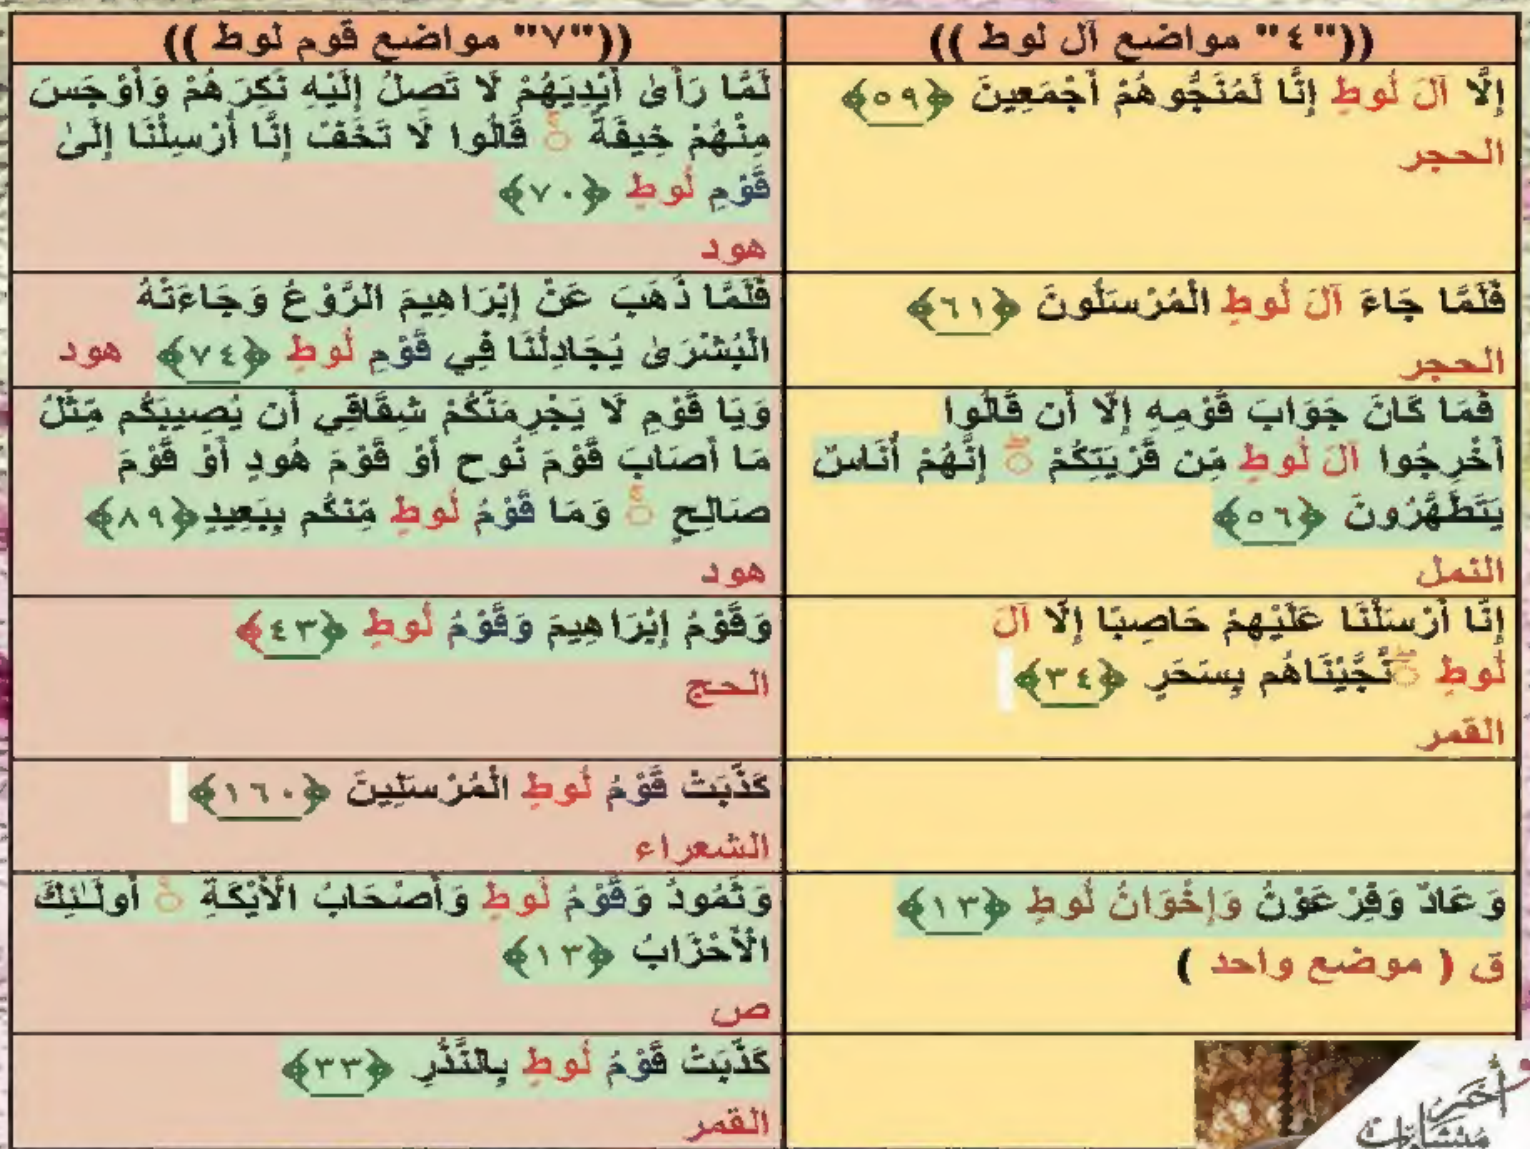 (("٤" مواضع آل لوط ))
(("٧" مواضع قوم لوط ))
إِلَّا آلَ لُوطٍ إِنَّا لَمُنَجُّوهُمْ أَجْمَعِينَ ﴿٥٩﴾
الحجر
لَمَّا رَأَىٰ أَيْدِيَهُمْ لَا تَصِلُ إِلَيْهِ نَكِرَهُمْ وَأَوْجَسَ
مِنْهُمْ خِيفَةً ۚ قَالُوا لَا تَخَفْ إِنَّا أُرْسِلْنَا إِلَىٰ
قَوْمِ لُوطٍ ﴿٧٠﴾
هود
فَلَمَّا جَاءَ آلَ لُوطٍ الْمُرْسَلُونَ ﴿٦١﴾
الحجر
فَلَمَّا ذَهَبَ عَنْ إِبْرَاهِيمَ الرَّوْعُ وَجَاءَتْهُ
الْبُشْرَىٰ يُجَادِلُنَا فِي قَوْمِ لُوطٍ ﴿٧٤﴾ هود
فَمَا كَانَ جَوَابَ قَوْمِهِ إِلَّا أَن قَالُوا
أَخْرِجُوا آلَ لُوطٍ مِّن قَرْيَتِكُمْ ۖ إِنَّهُمْ أُنَاسٌ
يَتَطَهَّرُونَ ﴿٥٦﴾
النمل
وَيَا قَوْمِ لَا يَجْرِمَنَّكُمْ شِقَاقِي أَن يُصِيبَكُم مِّثْلُ
مَا أَصَابَ قَوْمَ نُوحٍ أَوْ قَوْمَ هُودٍ أَوْ قَوْمَ
صَالِحٍ ۚ وَمَا قَوْمُ لُوطٍ مِّنكُم بِبَعِيدٍ ﴿٨٩﴾
هود
إِنَّا أَرْسَلْنَا عَلَيْهِمْ حَاصِبًا إِلَّا آلَ
لُوطٍ ۖ نَّجَّيْنَاهُم بِسَحَرٍ ﴿٣٤﴾
القمر
وَقَوْمُ إِبْرَاهِيمَ وَقَوْمُ لُوطٍ ﴿٤٣﴾
الحج
كَذَّبَتْ قَوْمُ لُوطٍ الْمُرْسَلِينَ ﴿١٦٠﴾
الشعراء
وَعَادٌ وَفِرْعَوْنُ وَإِخْوَانُ لُوطٍ ﴿١٣﴾
ق ( موضع واحد )
وَثَمُودُ وَقَوْمُ لُوطٍ وَأَصْحَابُ الْأَيْكَةِ ۚ أُولَـٰئِكَ
الْأَحْزَابُ ﴿١٣﴾
ص
كَذَّبَتْ قَوْمُ لُوطٍ بِالنُّذُرِ ﴿٣٣﴾
القمر